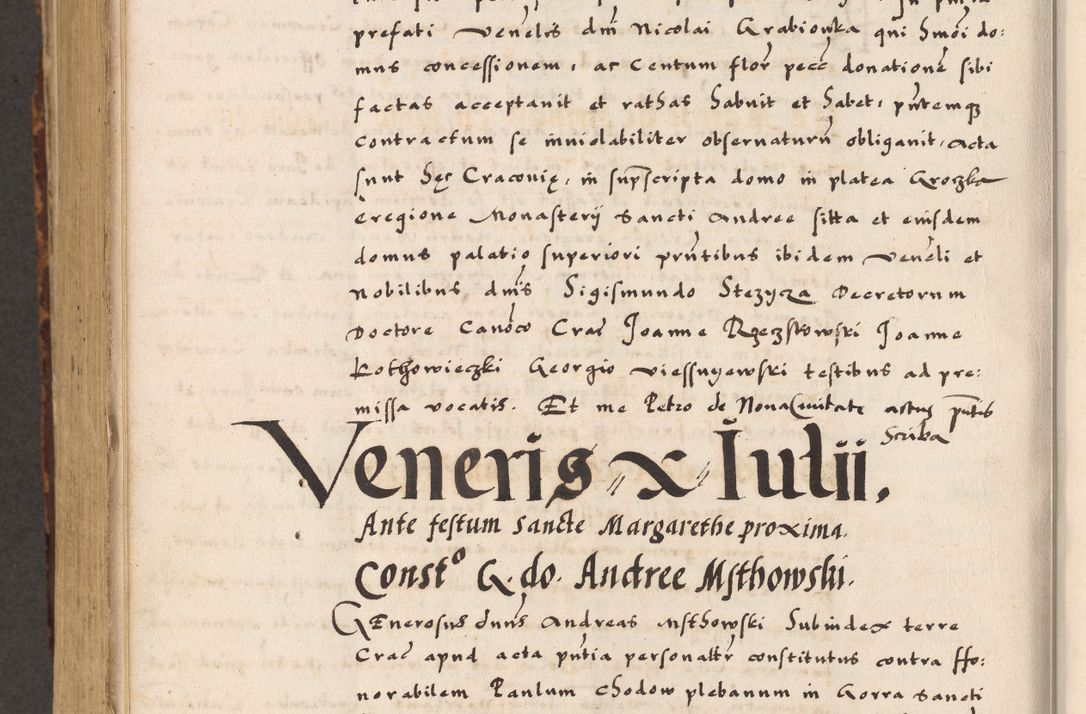 prefati venelis dni Nicolai Grabionka qui hmoi do:
mus concessionem, ac Centum flor pecc donatione sibi
factas acceptauit et rathas habuit et habet, pntemq
contractum se inuiolabiliter obseruaturu obligauit, Acta
sunt hęc Cracouię, in supscripta domo in platea Groczka
eregione Monasterij Sancti Andree sitta et eiusdem
domus palatio superiori pntibus ibidem veneli et
Nobilibus, dnis Sigismundo Stezycza Decretorum
Doctore Canoco Crac Joanne Rzeczkowski Joanne
Kothowieczki Georgio Viessnyewski testibus ad pre:
missa vocatis. Et me Petro de Noua Ciuitate actus pntis
Scriba
Veneris x Iulii.
Ante festum Sancte Margarethe proxima.
Const° G. do. Andree Msthowski.
GEnerosus dnus Andreas Msthowski Subiudex terre
Crac apud acta pntia personalr constitutus contra Ho:
norabilem Paulum Chodow plebanum in Gorra Sancti